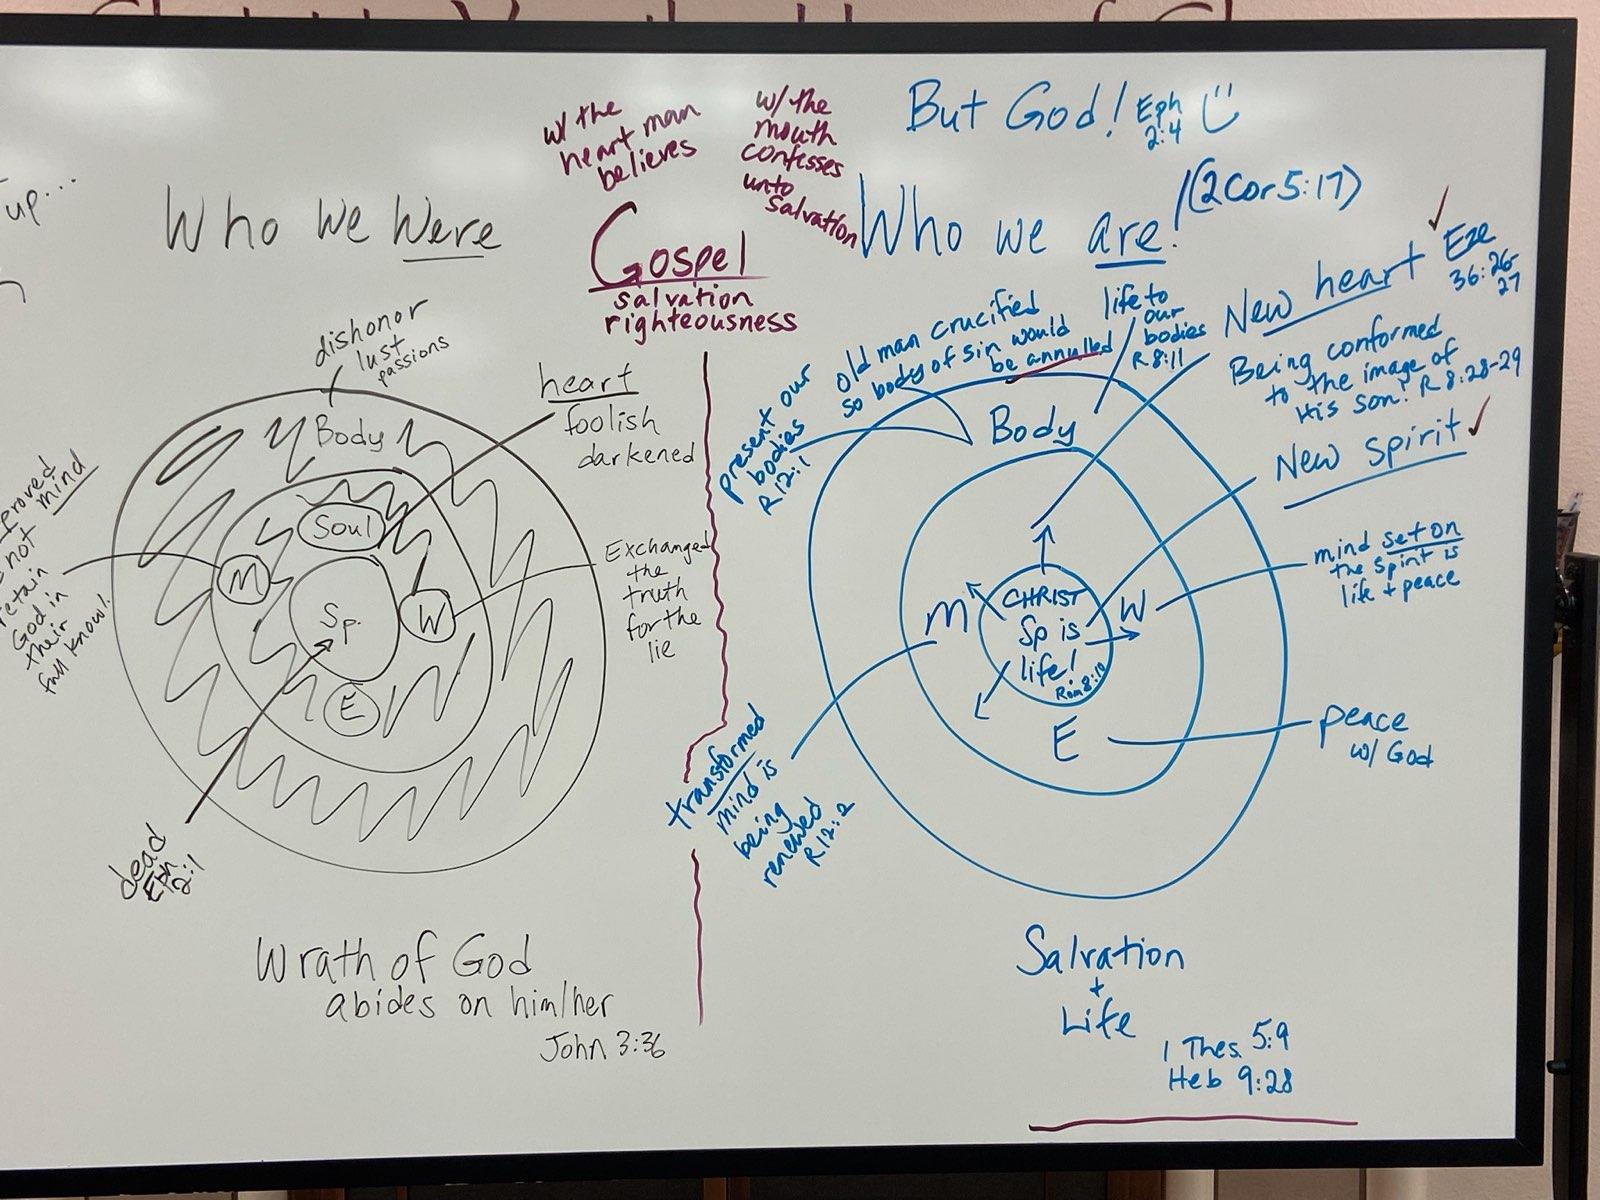 up...
Who we Were
dishonor
lust
passions
Body
heart
foolish
darkened
Soul
M
Sp.
W
E
mind
not
retain
God in
their
full knowl.
Exchanged
the
truth
for the
lie
dead
Eph
2:1
Wrath of God
abides on him/her
John 3:36
w/ the
heart man
believes
w/ the
mouth
confesses
unto
salvation
Gospel
salvation
righteousness
But God! Eph
2:4
Who we are! (2Cor 5:17)
old man crucified
so body of sin would
be annulled
life to
our
bodies
R 8:11
present our
bodies
R 12:1
New heart Eze
36:26-
27
Being conformed
to the image of
His son! R 8:28-29
New spirit
Body
CHRIST
Sp is
life!
Rom 8:10
M
W
E
mind set on
the spirit is
life + peace
peace
w/ God
transformed
mind is
being
renewed
R 12:2
Salvation
+
Life
1 Thes 5:9
Heb 9:28